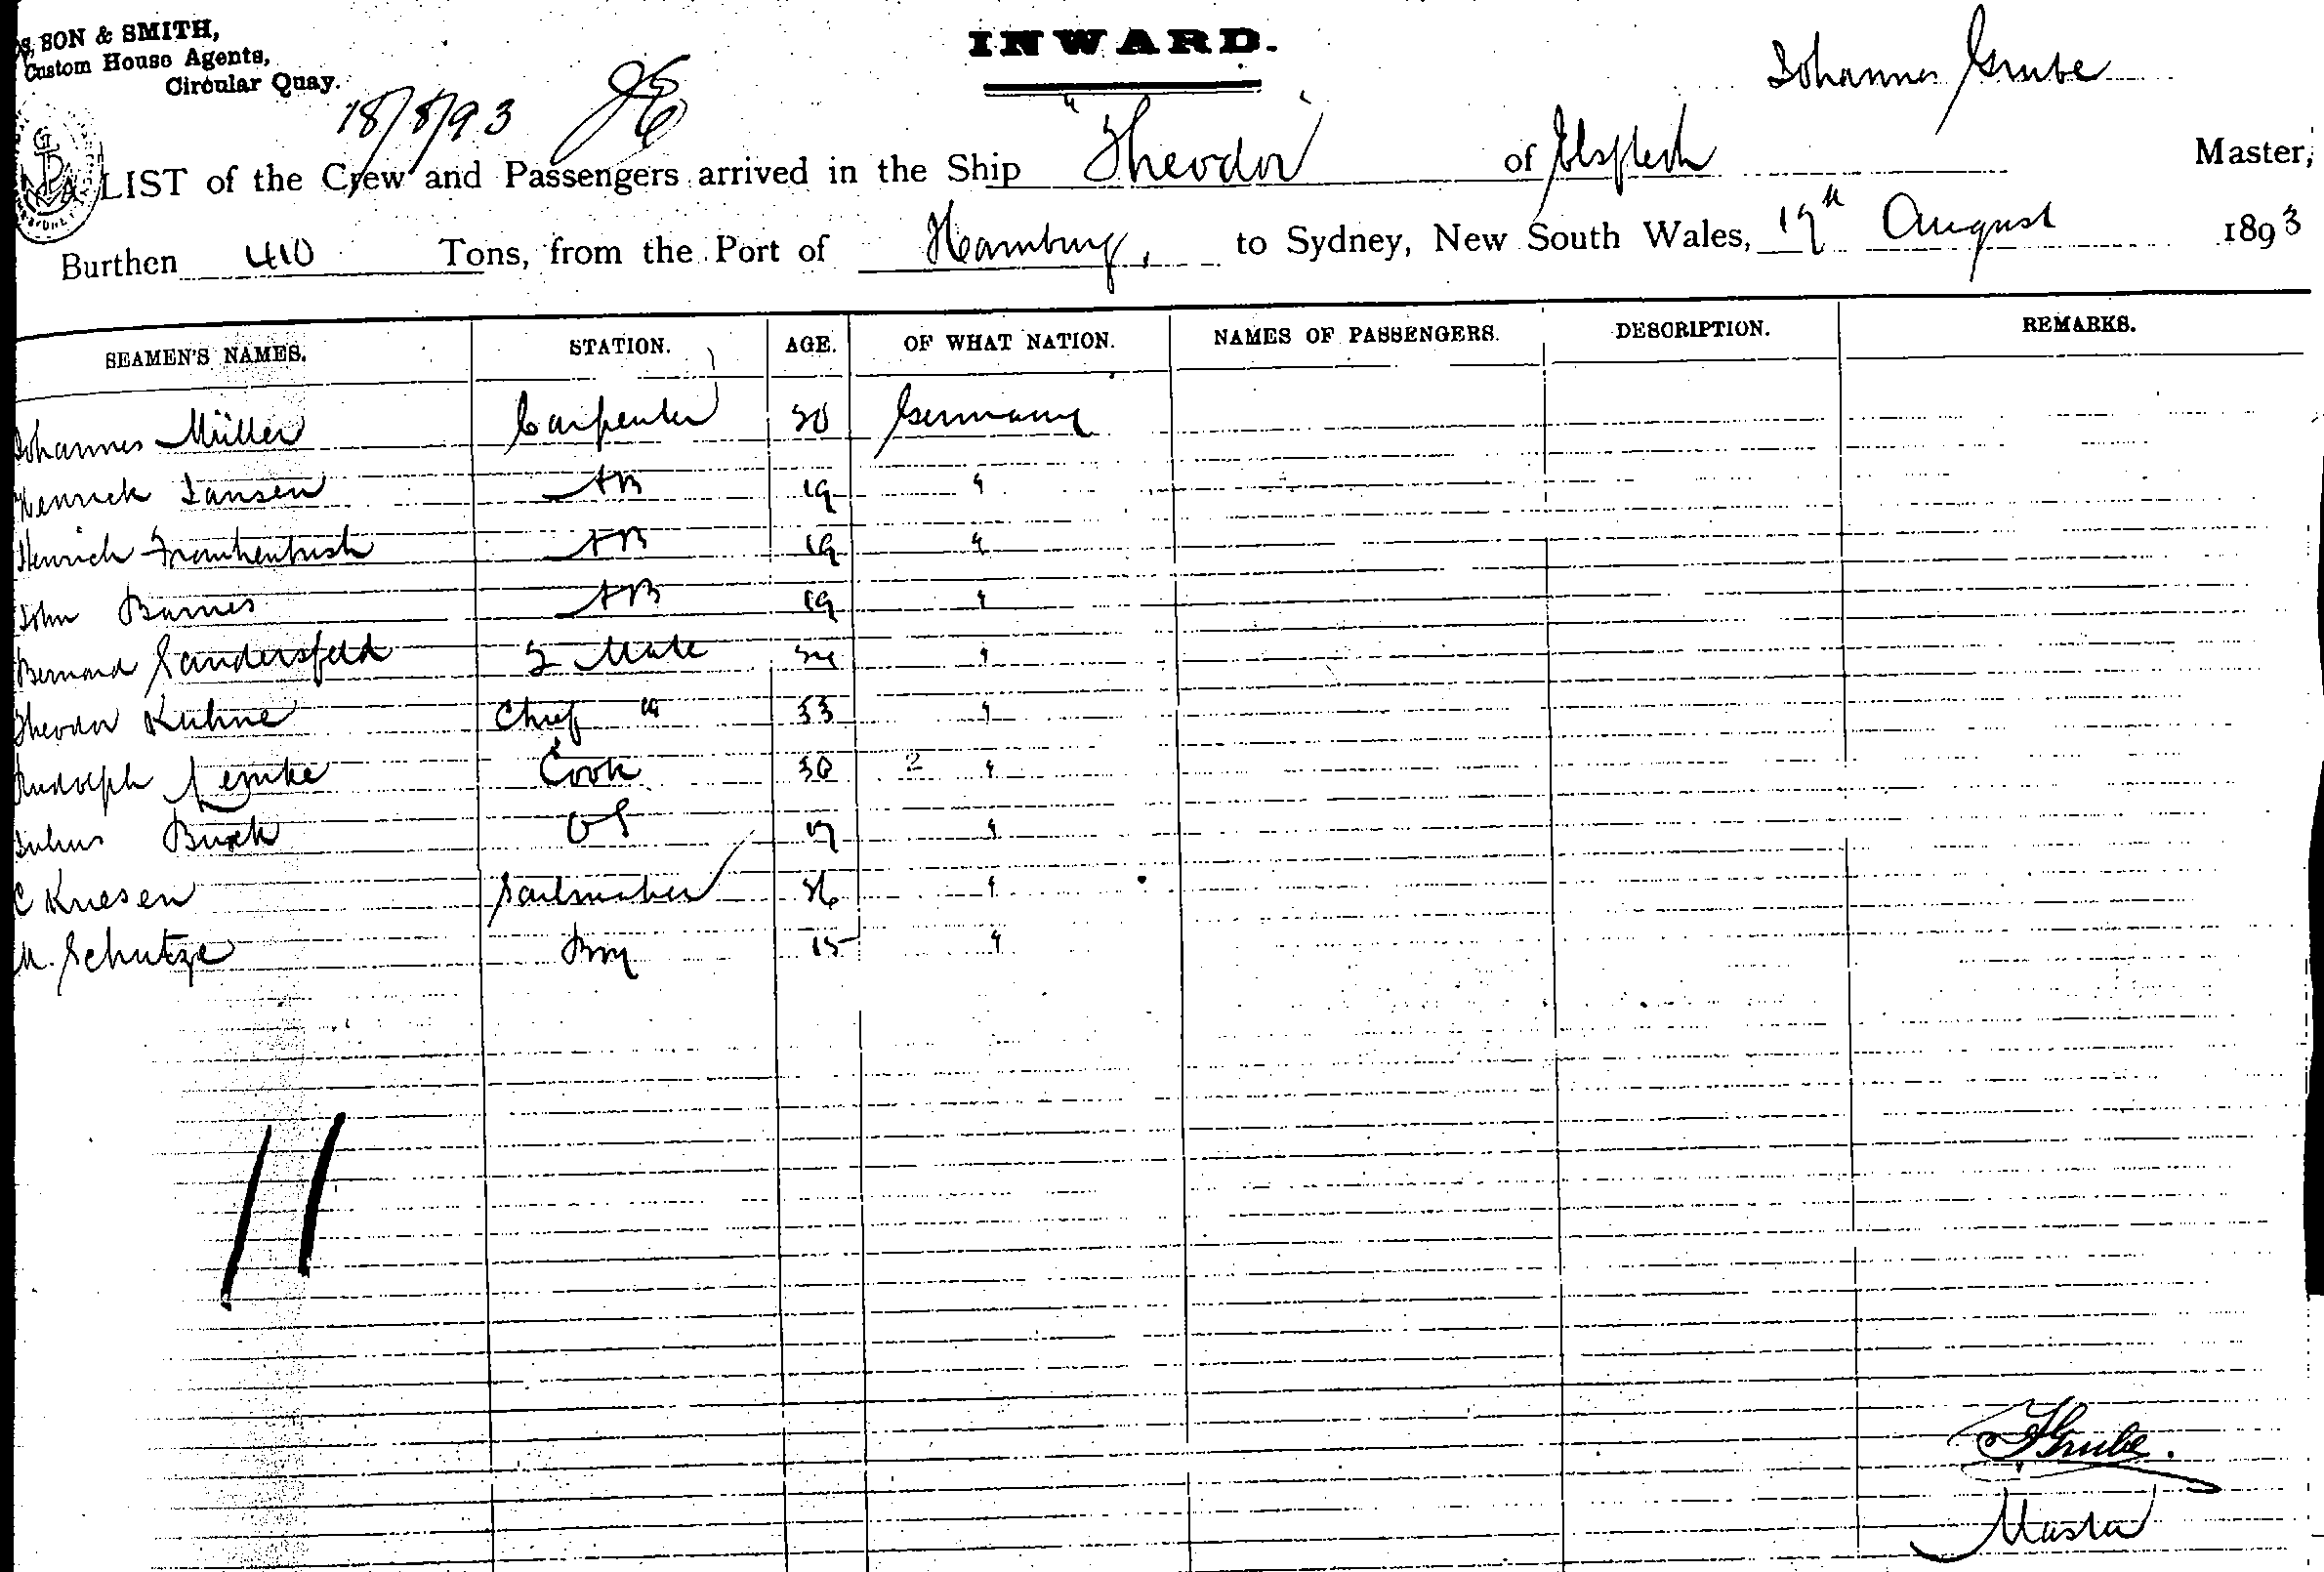 SON & SMITH,
Custom House Agents,
Circular Quay.
INWARD.
Johannes Grube
18/8/93
A LIST of the Crew and Passengers arrived in the Ship "Theodor" of Elsfleth Master,
Burthen 410 Tons, from the Port of Hamburg, to Sydney, New South Wales, 19th August 1893
SEAMEN'S NAMES. STATION. AGE. OF WHAT NATION. NAMES OF PASSENGERS. DESCRIPTION. REMARKS.
Johannes Müller Carpenter 30 Germany
Henrick Jansen AB 19 "
Henrich AB 19 "
John Barnes AB 19 "
Bernard Sandersfeld 2 Mate 24 "
Theodor Kuhne Chief " 33 "
Rudolph Lemke Cook 30 2 "
Julius Buck OS 17 "
C Kriesen Sailmaker 36 "
M. Schutze Boy 15 "
11
Grube.
Master